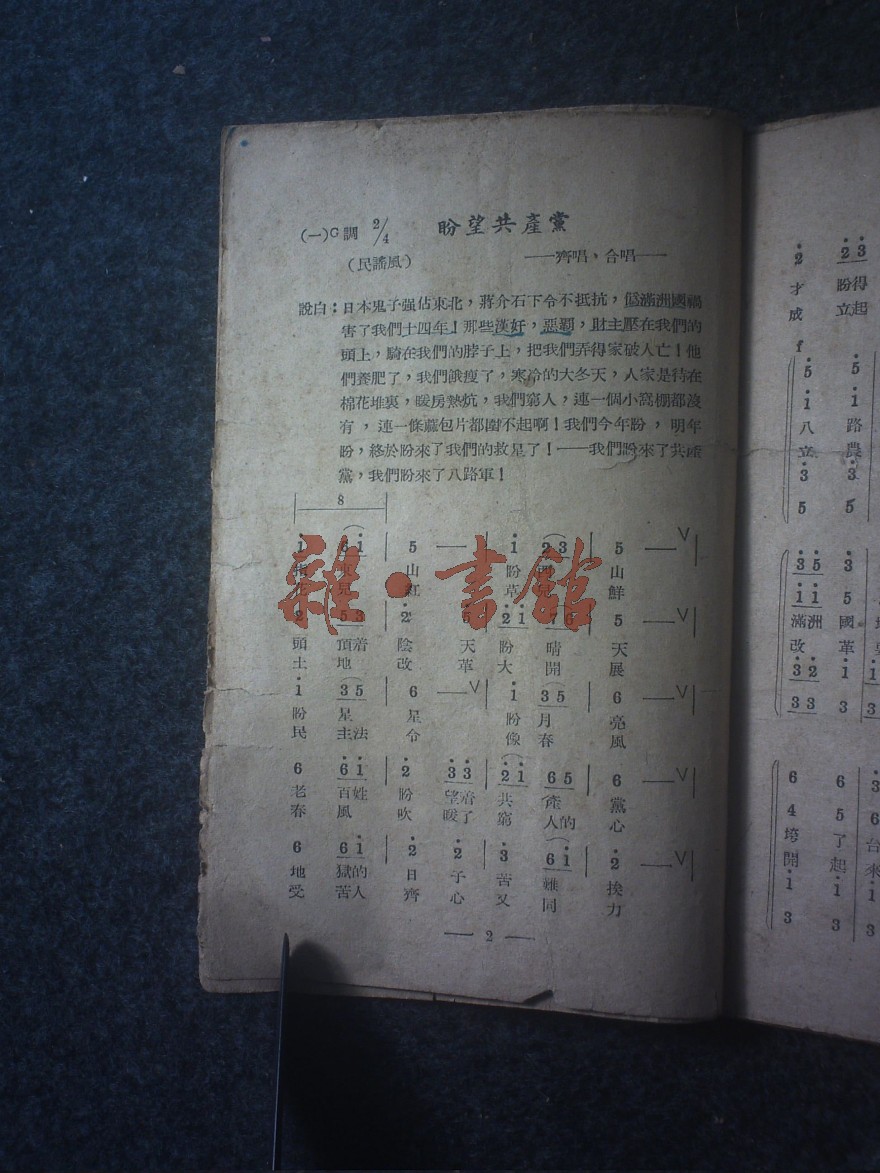 盼望共產黨
(一)G調 2/4
(民謠風) ——齊唱，合唱——
說白：日本鬼子強佔東北，蔣介石下令不抵抗，偽滿洲國禍
害了我們十四年！那些漢奸，惡霸，財主壓在我們的
頭上，騎在我們的脖子上，把我們弄得家破人亡！他
們養肥了，我們餓瘦了，寒冷的大冬天，人家是待在
棉花堆裏，暖房熱炕，我們窮人，連一個小窩棚都沒
有，連一條蔴包片都圍不起啊！我們今年盼，明年
盼，終於盼來了我們的救星了！——我們盼來了共產
黨，我們盼來了八路軍！
8
i 6 i | 5 — | i 2 3 | 5 — V |
山 盼 山
紅 草 鮮
2 5 3 | 2 5 | 2 i 7 6 | 5
頭 頂着 陰 天 盼 晴 天
土 地 改 革 大 開 展
i 3 5 | 6 — V | i 3 5 | 6 — V |
盼 星 星 盼 月 亮
民 主法 令 像 春 風
6 6 i | 2 3 3 | 2 i 6 5 | 6 — V |
老 百姓 盼 望着 共 產 黨
春 風 吹 暖了 窮 人的 心
6 6 i | 2 2 | 3 6 i | 2 — V |
地 獄的 日 子 苦 難 挨
受 苦人 齊 心 又 同 力
— 2 —
2 2 3
才 盼得
成 立起
f
5 5
i i
八 路
立 農
3 3
5 5
3 5 3
i i 5
滿洲 國
改 革
3 2 i
3 3 3
6 6 3
4 5 6
垮 了 台
開 起 來
i i i
3 3 3
雜·書館